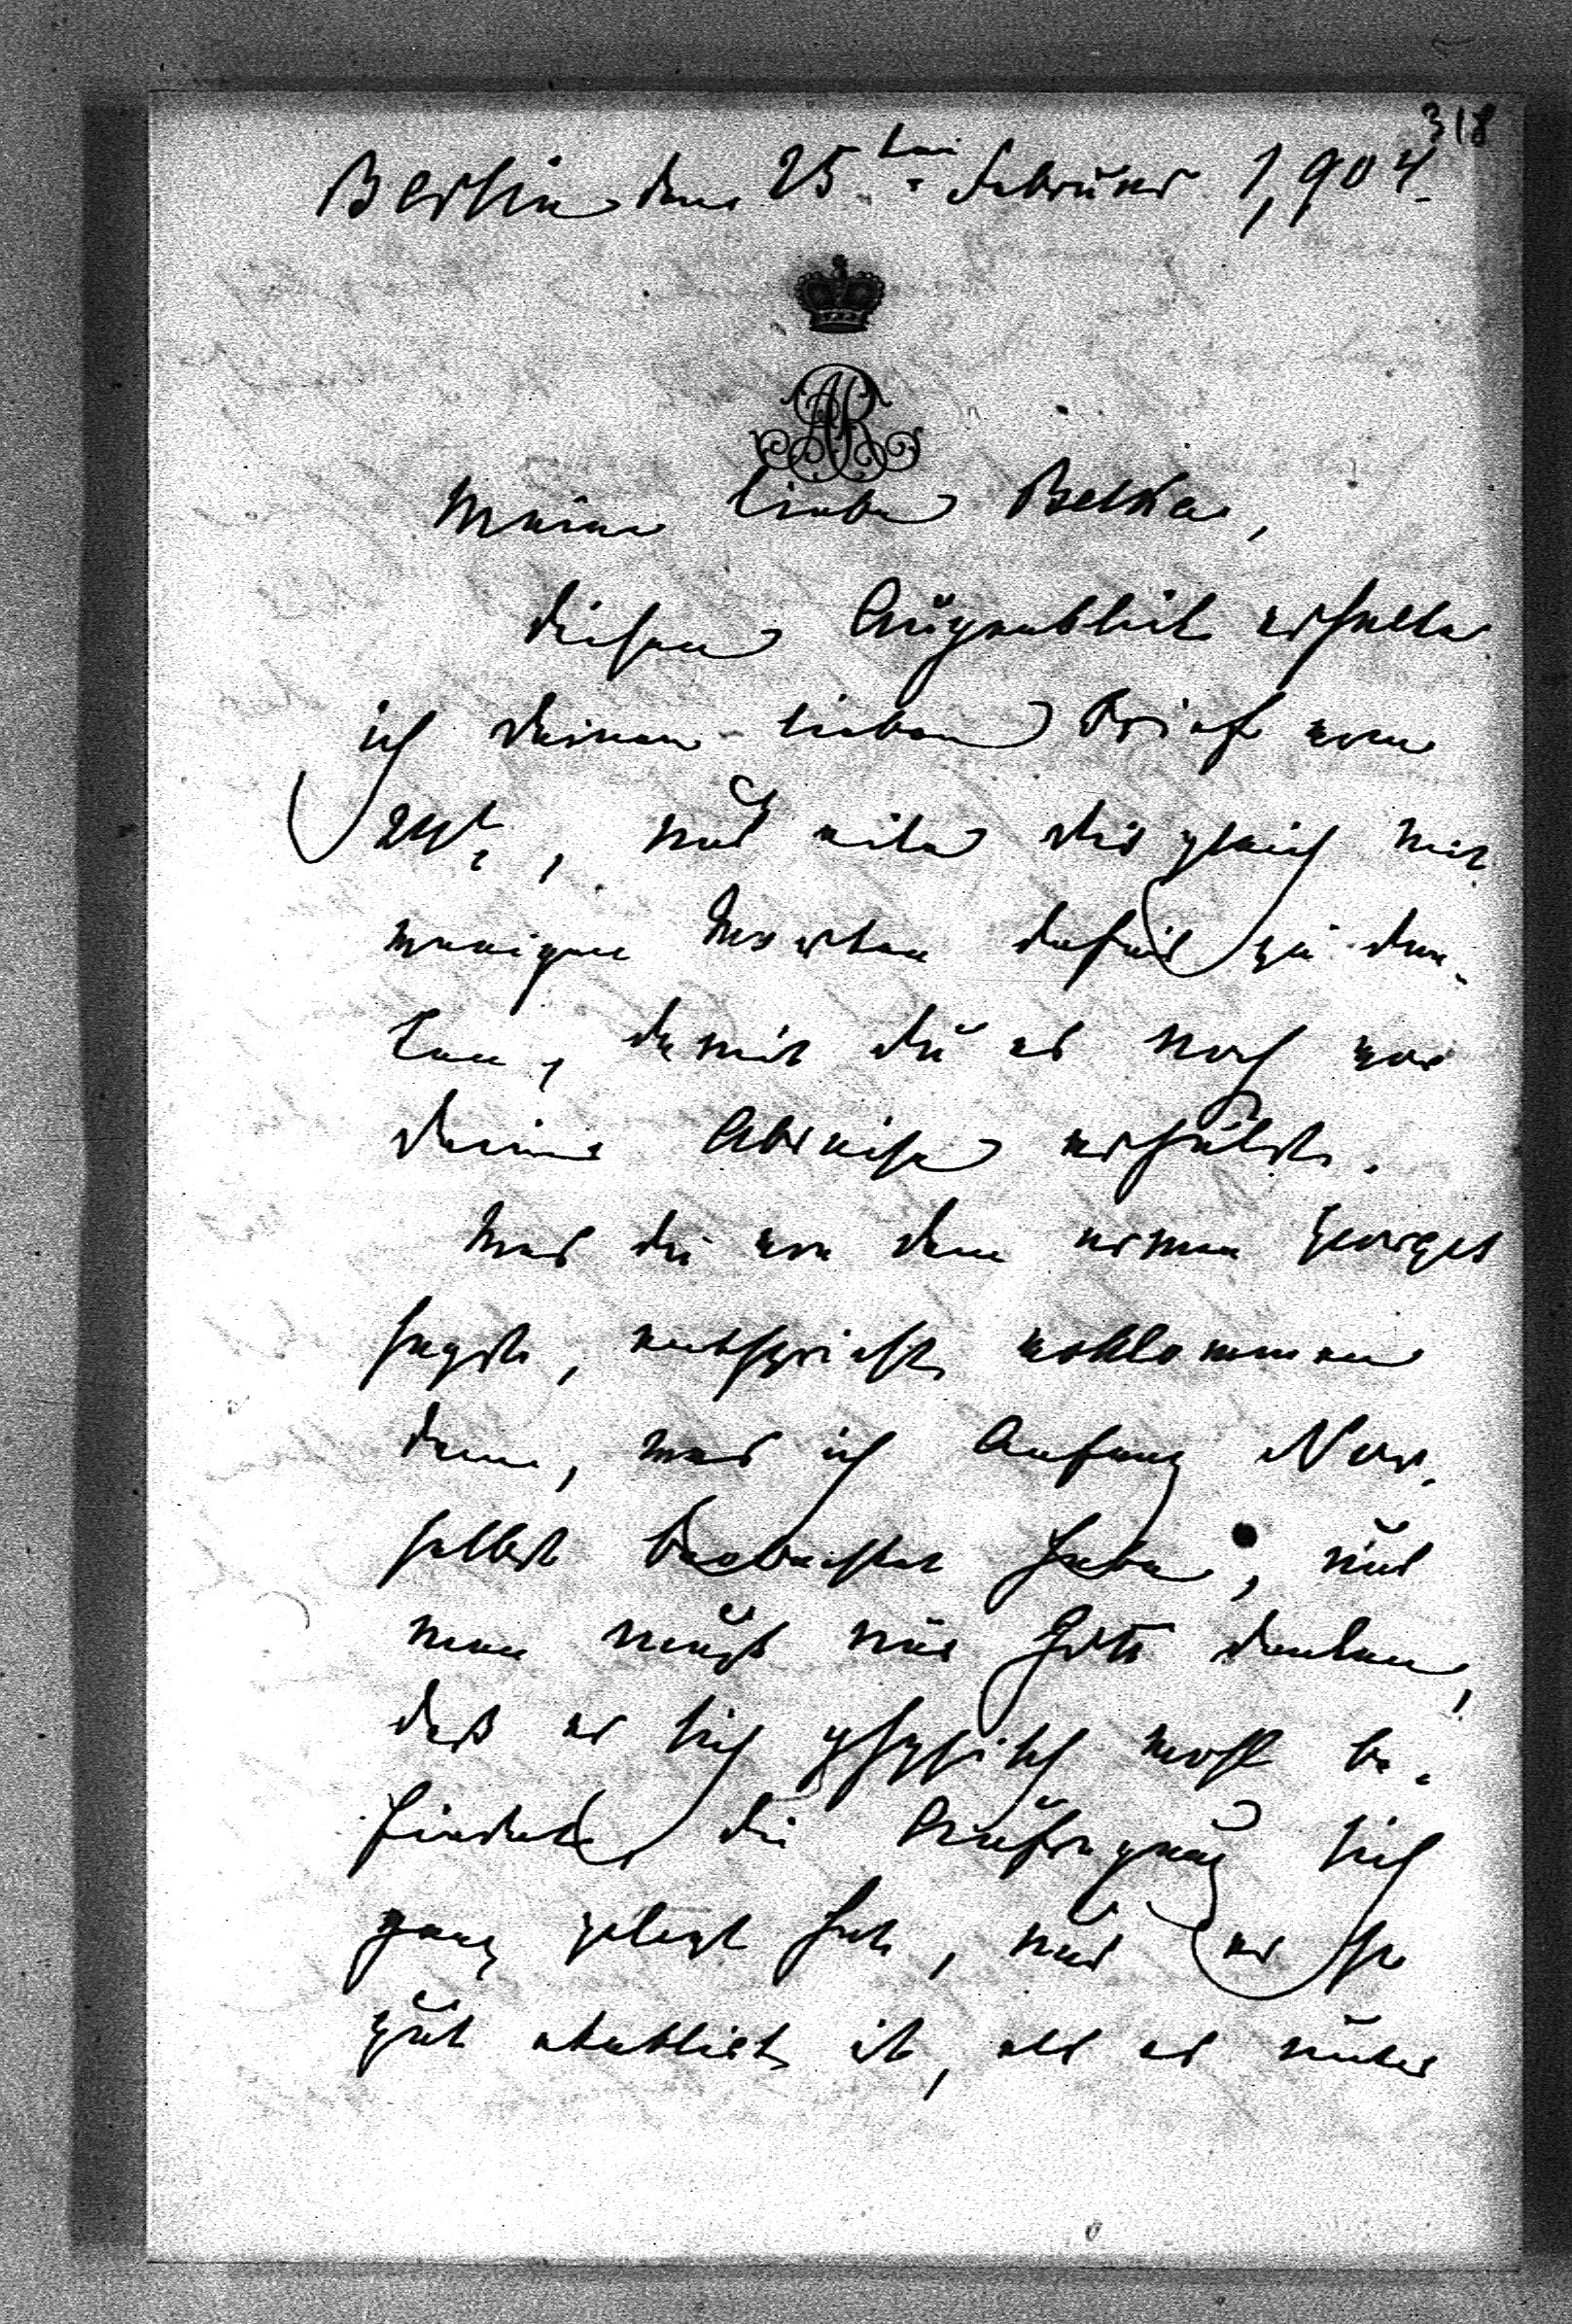 318
Berlin den 25ten Februar 1,904.
AR
Meine liebe Betka,
diesen Augenblick erhalte
ich deinen lieben Brief vom
24t, und eile dir gleich mit
wenigen Worten dafür zu dan-
ken, damit du es noch vor
deiner Abreise erhälst.
Was du von dem armen Georges
sagst, entspricht vollkommen
dem, was ich Anfang Nov.
selbst beobachtet habe, und
man muß nur Gott danken,
daß er sich physisch wohl be-
findet, die Aufregung sich
ganz gelegt hat, und er so
gut etablirt ist, als es unter